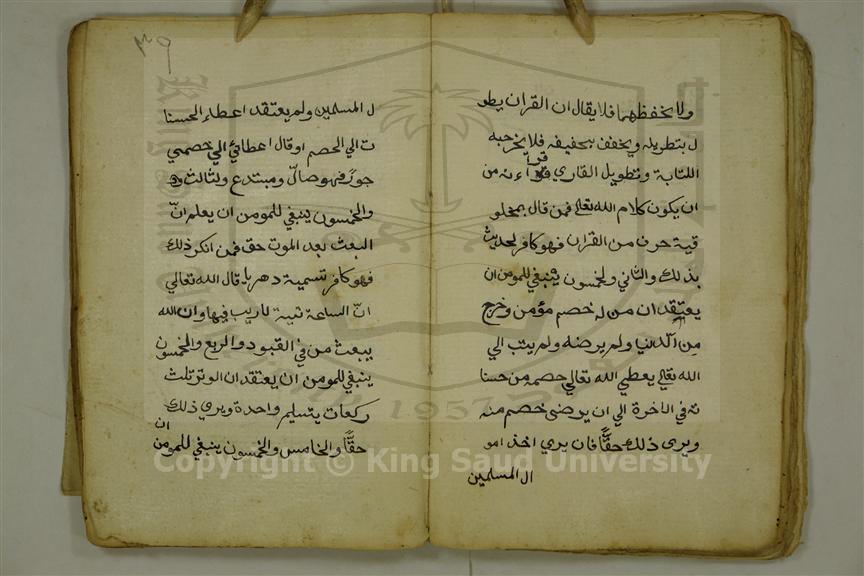 ولا بحفظهما فلا يقال ان القران يطو
ل بتطويله ويخفف بتخفيفه فلا يخرجه
الكتابة وتطويل القاري قراءته من
ان يكون كلام الله تعالى فمن قال بمخلو
قية حرف من القران فهو كافر لحديث
بذلك والثاني والخمسون ينبغي للمومن ان
يعتقد ان من له خصم مؤمن وخرج
من الدنيا ولم يرضه ولم يتب الي
الله تعالي يعطي الله تعالي خصمه من حسنا
ته في الاخرة الي ان يرضى خصم منه
ويرى ذلك حقًّا فان يري اخذ امو
ال المسلمين
٣٩
ل المسلمين ولم يعتقد اعطاء الحسنا
ت الي الخصم او قال اعطائي الي خصمي
جورٌ فهو ضالّ ومبتدع والثالث و
والخمسون ينبغي للمومن ان يعلم انّ
البعث بعد الموت حق فمن انكر ذلك
فهو كافر تسمية دهريا قال الله تعالي
انّ الساعة تية لا ريب فيها وان الله
يبعث من في القبور والربع والخمسون
ينبغي للمومن ان يعتقد ان الوتر ثلث
ركعات بتسليم واحدة ويري ذلك
حقًّا والخامس والخمسون ينبغي للمومن ان
Copyright © King Saud University
1957